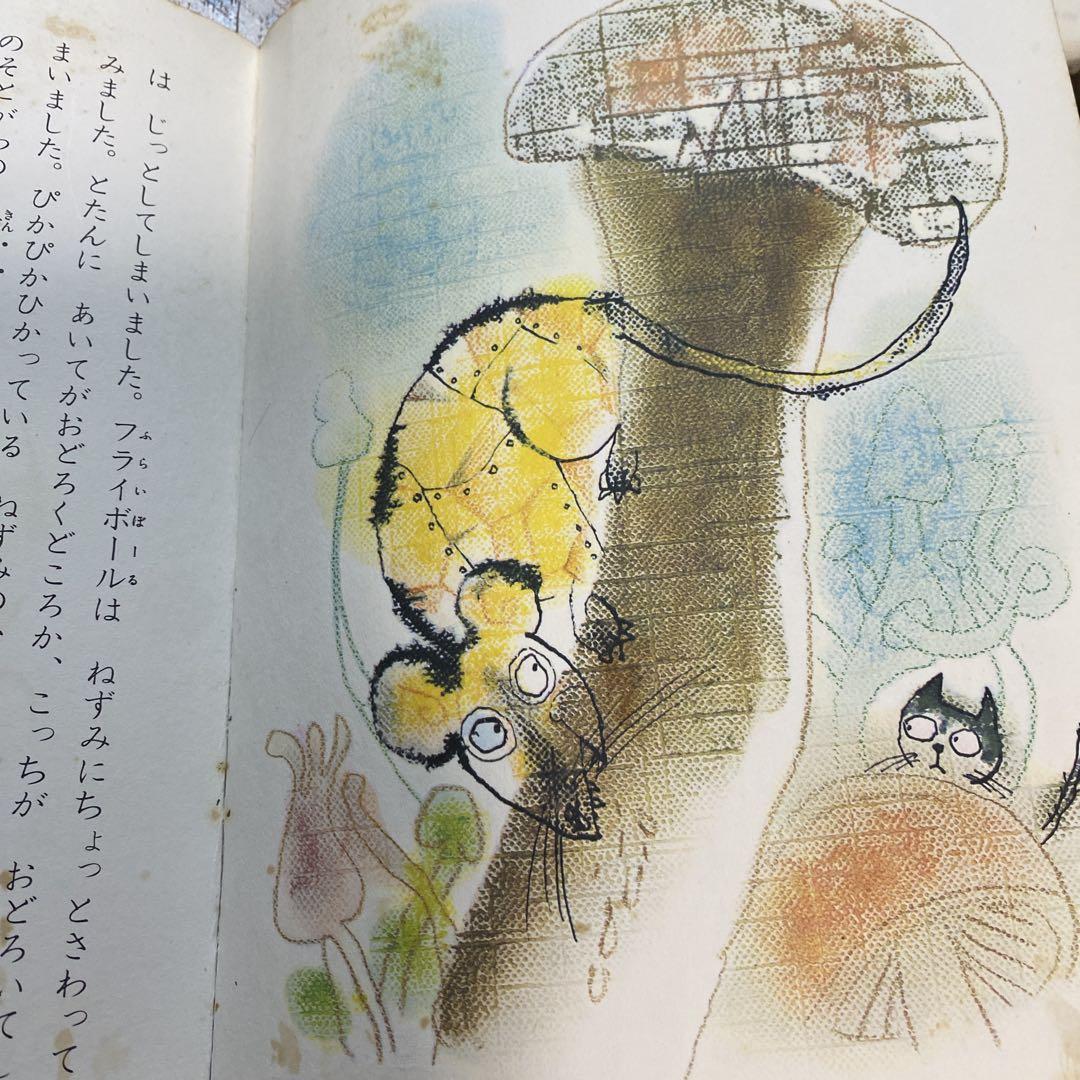 は じっとしてしまいました。フライボールは ねずみにちょっとさわって
ふらいぼーる
みました。とたんに あいてがおどろくどころか、こっちが おどろいて
まいました。ぴかぴかひかっている ねずみの、
きん